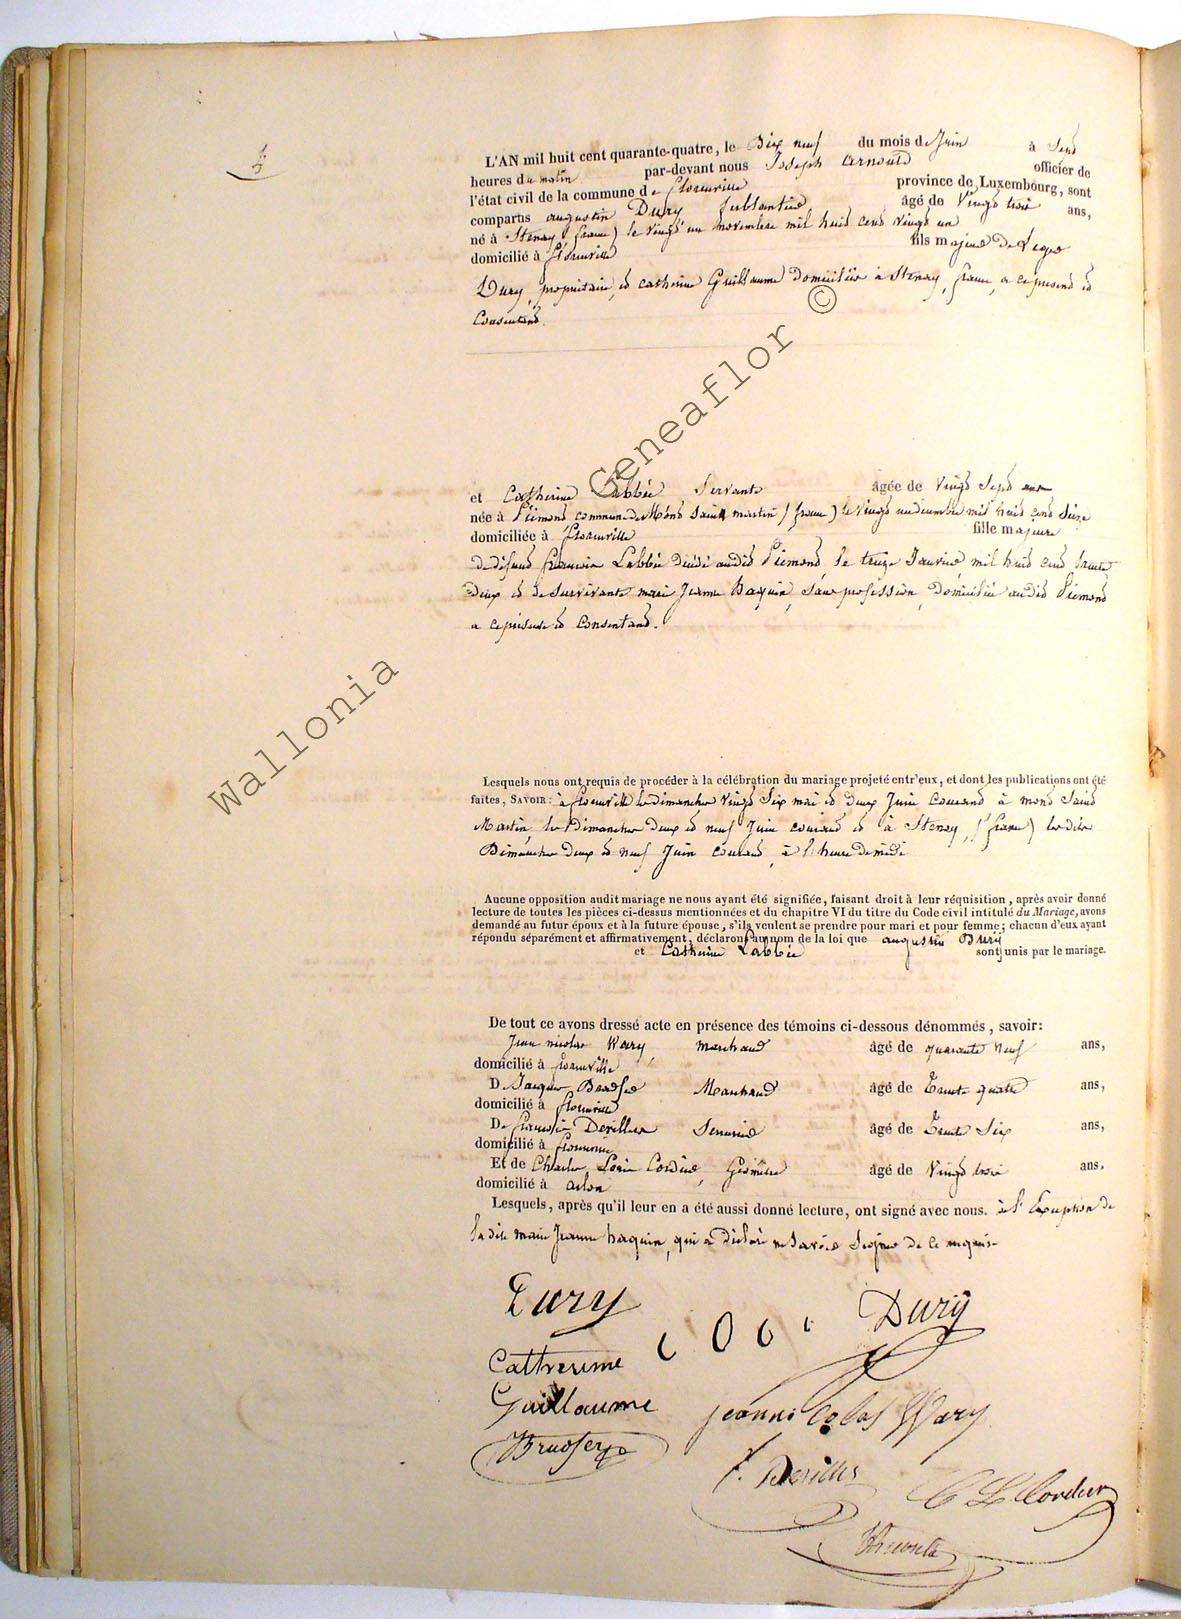 4
L'AN mil huit cent quarante-quatre, le Dix neuf du mois de Juin à Sept
heures du matin par-devant nous Joseph Arnould officier de
l'état civil de la commune de florenville province de Luxembourg, sont
comparus augustin Dury ferblantier âgé de Vingt trois ans,
né à Stenay (france) le vingt un novembre mil huit cent vingt un
domicilié à florenville fils majeur de
Dury, propriétaire, et catherine Guillaume domiciliés à Stenay, france, a ce présent et
Consentant.
et Catherine Labbée Servante âgée de vingt Sept ans
née à Piémont commune de Mont Saint martin (france) le vingt un décembre mil huit cent Seize
domiciliée à florenville fille majeure
de défunt françois Labbée décédé audit Piémont le treize Janvier mil huit cent trente
deux et de Survivante marie Jeanne Haquin, Sans profession, domiciliée audit Piémont
a ce présente et Consentant.
Lesquels nous ont requis de procéder à la célébration du mariage projeté entr'eux, et dont les publications ont été
faites, SAVOIR: à florenville les Dimanches vingt Six mai et deux Juin Courant à mont Saint
Martin, les Dimanches Deux et neuf Juin courant et à Stenay, (france) les dits
Dimanches Deux et neuf Juin courant, à l'heure de midi
Aucune opposition audit mariage ne nous ayant été signifiée, faisant droit à leur réquisition, après avoir donné
lecture de toutes les pièces ci-dessus mentionnées et du chapitre VI du titre du Code civil intitulé du Mariage, avons
demandé au futur époux et à la future épouse, s'ils veulent se prendre pour mari et pour femme; chacun d'eux ayant
répondu séparément et affirmativement, déclarons au nom de la loi que augustin Dury
et Catherine Labbée sont unis par le mariage.
De tout ce avons dressé acte en présence des témoins ci-dessous dénommés, savoir:
Jean nicolas Wary, Marchand âgé de quarante neuf ans,
domicilié à florenville
De Jacques Marchand âgé de Trente quatre ans,
domicilié à florenville
De françois Deville Serrurier âgé de Trente Six ans,
domicilié à florenville
Et de Charles Louis Cordier, Géomètre âgé de Vingt trois ans.
domicilié à arlon
Lesquels, après qu'il leur en a été aussi donné lecture, ont signé avec nous. à l'Exception de
la dite marie Jeanne haquin, qui a Déclaré ne Savoir Signer de ce requise
Dury Dury
Cattherinne
Guillaume Jeanni Colas Wary
F. Devilles C L Cordier
Wallonia Geneaflor ©